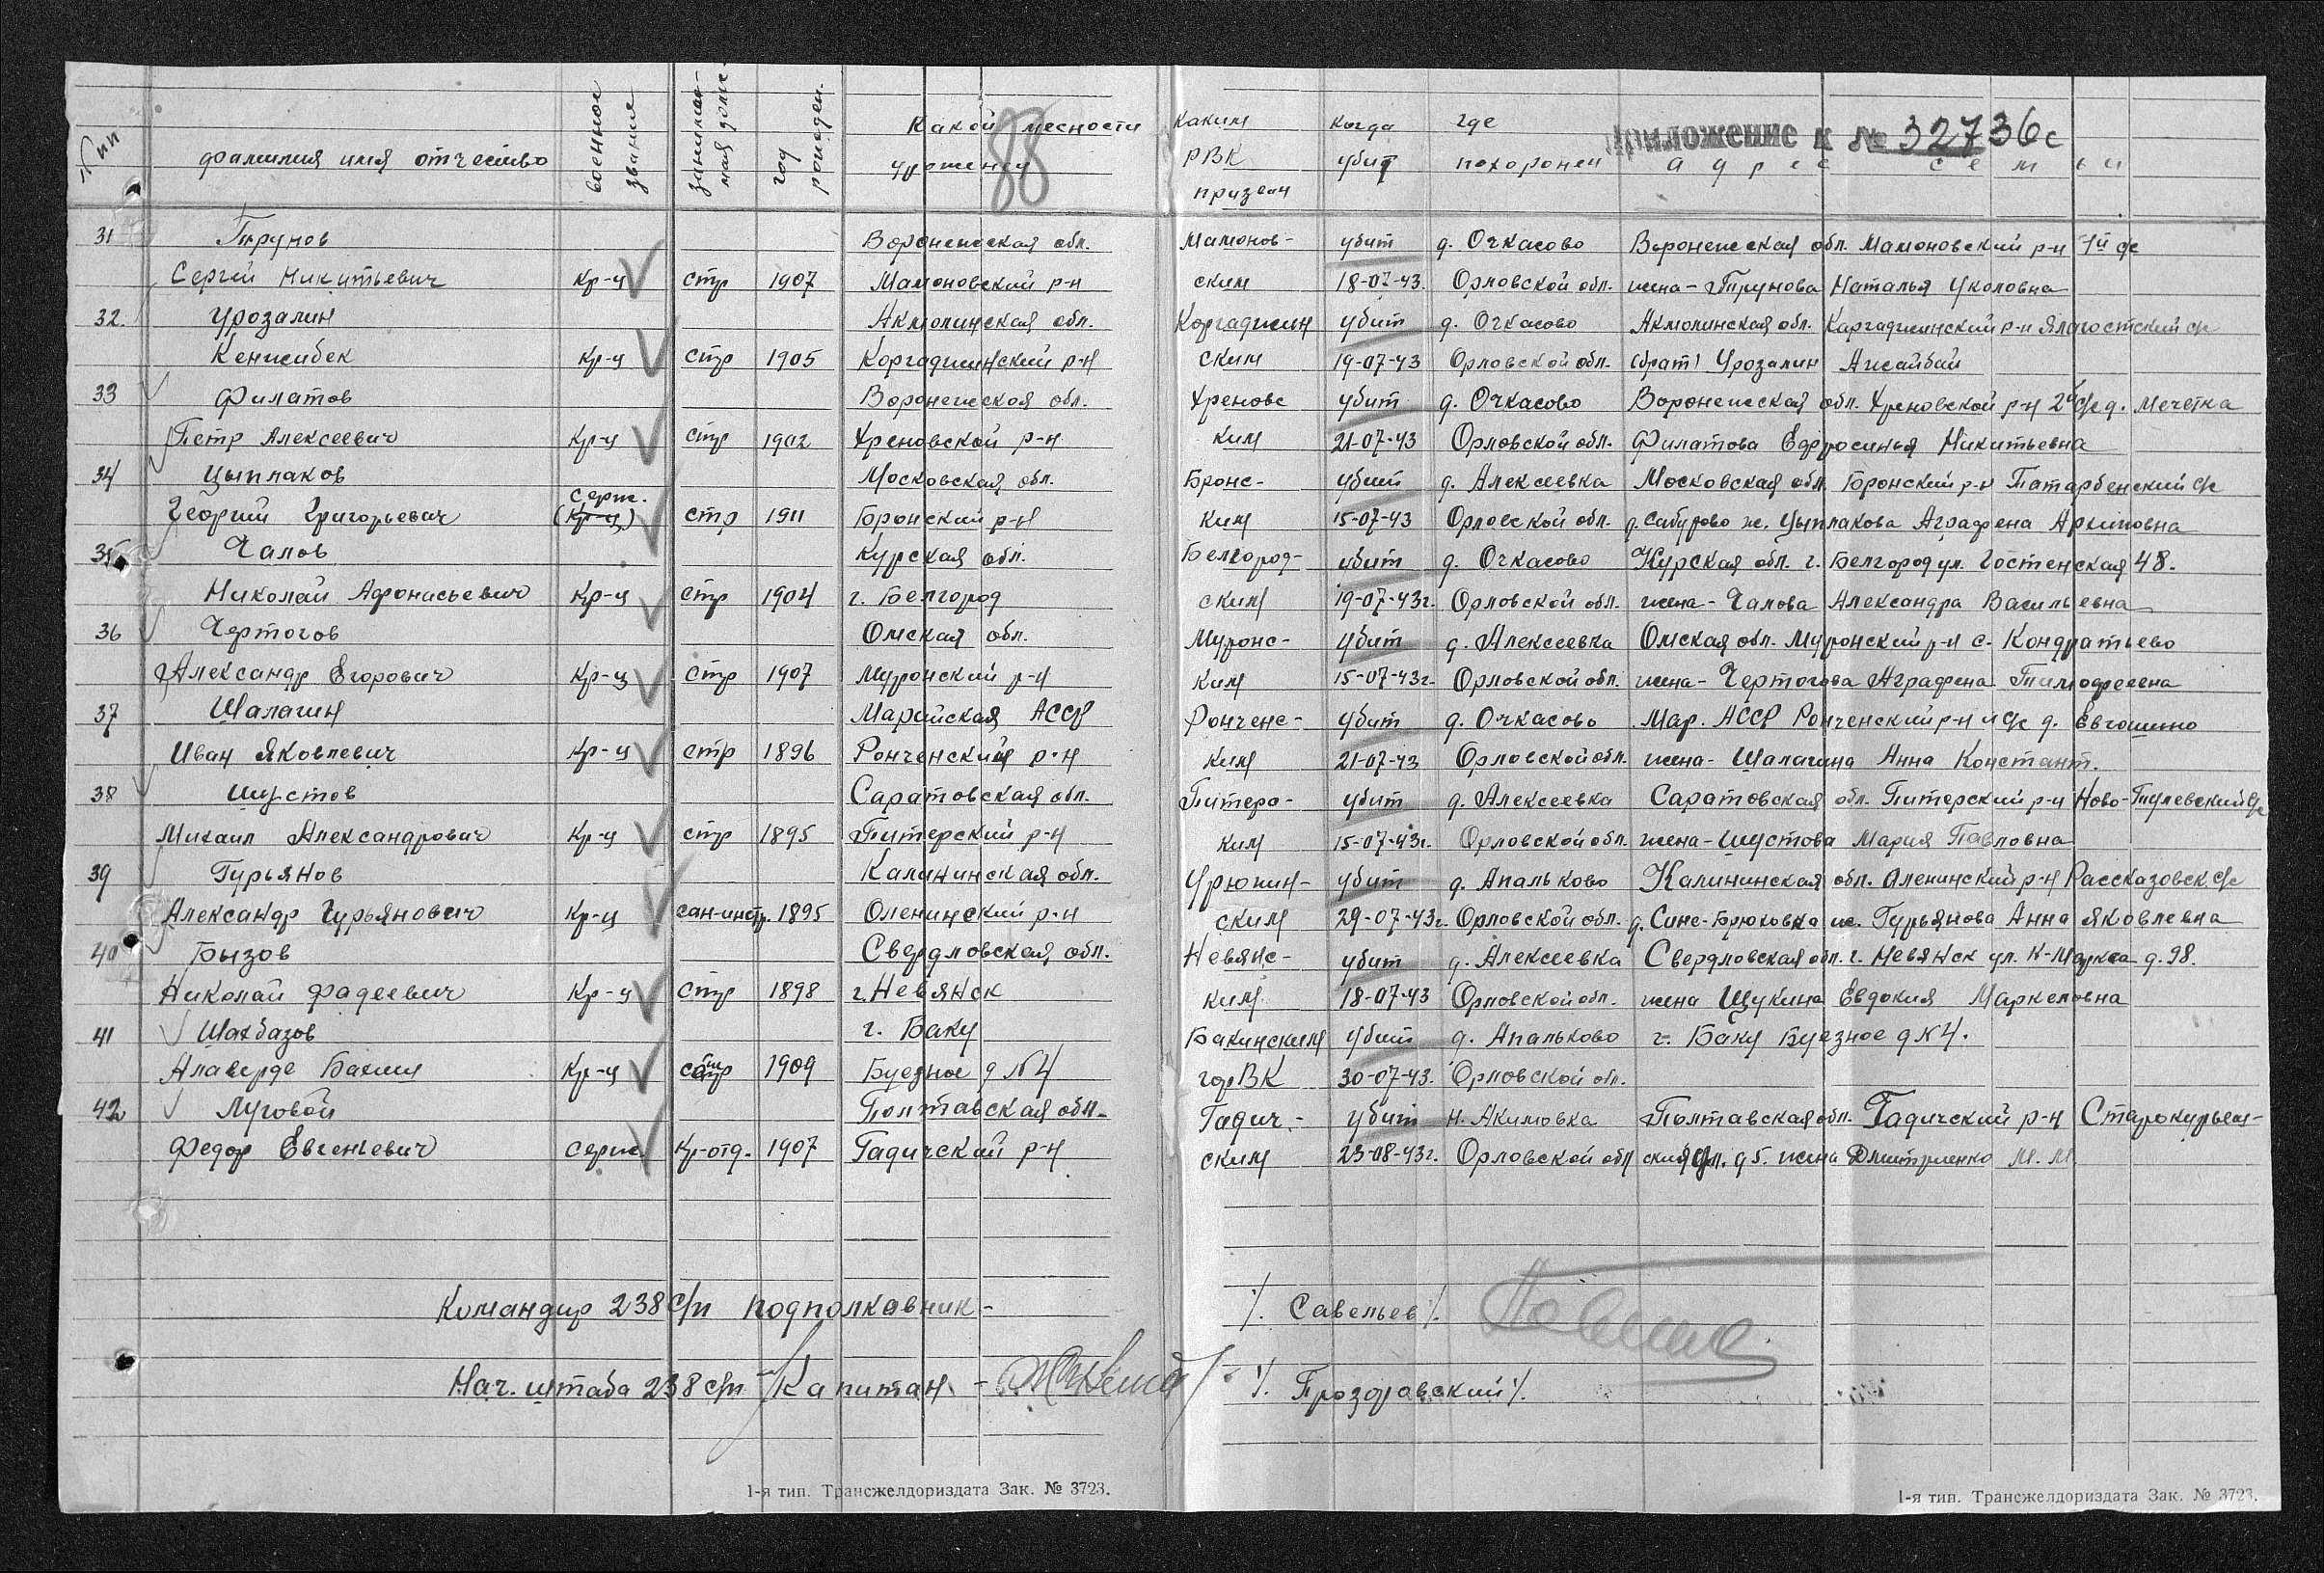 Приложение к № 32736с
88
№ пп фамилия имя отчество военное звание занимаемая долж. год рожден. Какой месности уроженец Каким РВК призван Когда убит где похоронен адрес семьи
31 Трунов Воронежская обл. Мамонов- убит д. Очкасово Воронежская обл. Мамоновский р-н
Сергей Никитьевич Кр-ц стр 1907 Мамоновский р-н ским 18-07-43. Орловской обл. жена - Трунова Наталья Уколовна
32. Урозалин Акмолинская обл. Коргаджин убит д. Очкасово Акмолинская обл. Каргаджинский р-н
Кенжибек Кр-ц стр 1905 Коргаджинский р-н ским 19-07-43 Орловской обл. (брат) Урозалин Ажсайбай
33 Филатов Воронежская обл. Хреновс убит д. Очкасово Воронежская обл. Хреновской р-н 2й с/с д. Мечетка
Петр Алексеевич Кр-ц стр 1902 Хреновской р-н ким 21-07-43 Орловской обл. Филатова Ефросинья Никитьевна
34 Цыплаков Московская обл. Бронс- убит д. Алексеевка Московская обл. Бронский р-н
Георгий Григорьевич серж. (Кр-ц) стр 1911 Бронский р-н ким 15-07-43 Орловской обл. д. Сабурово ж. Цыплакова Аграфена Архиповна
35 Чалов Курская обл. Белгород- убит д. Очкасово Курская обл. г. Белгород ул. Гостенская 48.
Николай Афонасьевич Кр-ц стр 1904 г. Белгород ским 19-07-43г. Орловской обл. жена - Чалова Александра Васильевна
36 Чертогов Омская обл. Муронс- убит д. Алексеевка Омская обл. Муронский р-н с. Кондратьево
Александр Егорович Кр-ц стр 1907 Муронский р-н ким 15-07-43г. Орловской обл. жена - Чертогова Аграфена Тимофеевна
37 Шалагин Марийская АССР Ронченс- убит д. Очкасово Мар. АССР Ронченский р-н
Иван Яковлевич Кр-ц стр 1896 Ронченский р-н ким 21-07-43 Орловской обл. жена - Шалагина Анна Констант.
38 Шустов Саратовская обл. Питерс- убит д. Алексеевка Саратовская обл. Питерский р-н Ново-Тулевский с/с
Михаил Александрович Кр-ц стр 1895 Питерский р-н ким 15-07-43г. Орловской обл. жена - Шустова Мария Павловна
39 Гурьянов Калининская обл. Урюпин- убит д. Апальково Калининская обл. Оленинский р-н Рассказовск. с/с
Александр Гурьянович Кр-ц сан-инстр. 1895 Оленинский р-н ским 29-07-43г. Орловской обл. д. Сине-Брюховка ж. Гурьянова Анна Яковлевна
40 Бызов Свердловская обл. Невянс- убит д. Алексеевка Свердловская обл. г. Невянск ул. К-Маркса д. 98.
Николай Фадеевич Кр-ц стр 1898 г. Невянск ким 18-07-43 Орловской обл. жена Щукина Евдокия Маркеловна
41 Шахбазов г. Баку Бакинским убит д. Апальково г. Баку Буезное д № 4.
Алаверде Бахши Кр-ц стр 1909 Буезное д № 4 горВК 30-07-43. Орловской обл.
42 Луговой Полтавская обл. Гадич.- убит н. Акимовка Полтавская обл. Гадичский р-н
Федор Евгеньевич серж. Кр-отд. 1907 Гадичский р-н ским 23-08-43г. Орловской обл д 5. жена Дмитриенко М. М.
Командир 238 с/п подполковник - /. Савельев /.
Нач. штаба 238 с/п Капитан - /. Гроздавский /.
1-я тип. Трансжелдориздата Зак. № 3723. 1-я тип. Трансжелдориздата Зак. № 3723.